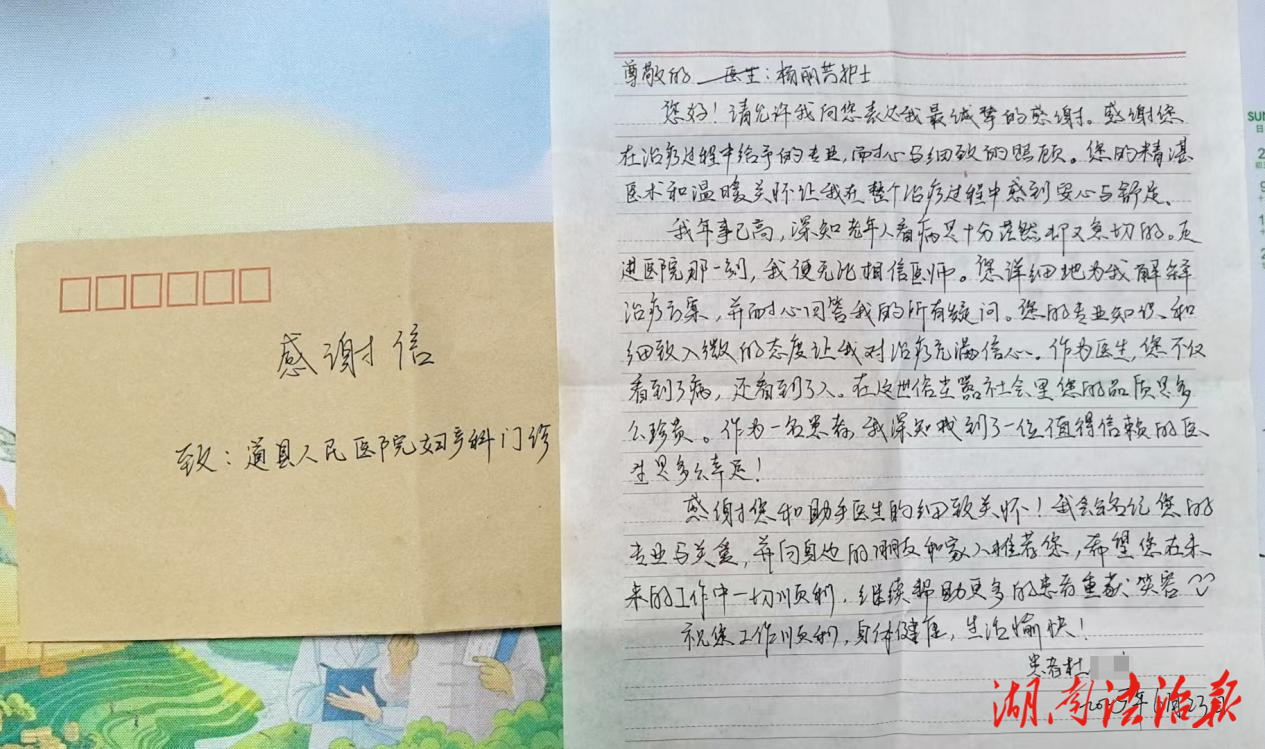 感谢信
致：道县人民医院妇产科门诊
尊敬的 医生：杨丽芸护士
您好！请允许我向您表达我最诚挚的感谢。感谢您
在治疗过程中给予的专业，耐心与细致的照顾。您的精湛
医术和温暖关怀让我在整个治疗过程中感到安心与舒适。
我年事已高，深知老年人看病是十分茫然却又急切的。走
进医院那一刻，我便无比相信医师。您详细地为我解释
治疗方案，并耐心回答我的所有疑问。您的专业知识和
细致入微的态度让我对治疗充满信心。作为医生，您不仅
看到了病，还看到了人。在这世俗尘嚣社会里您的品质是多
么珍贵。作为一名患者，我深知找到了一位值得信赖的医
生是多么幸运！
感谢您和助手医生的细致关怀！我会铭记您的
专业与关爱，并向身边的朋友和家人推荐您，希望您在未
来的工作中一切顺利，继续帮助更多的患者重获笑容
祝您工作顺利，身体健康，生活愉快！
患者杜
23日
湖南法治报
SUN
日